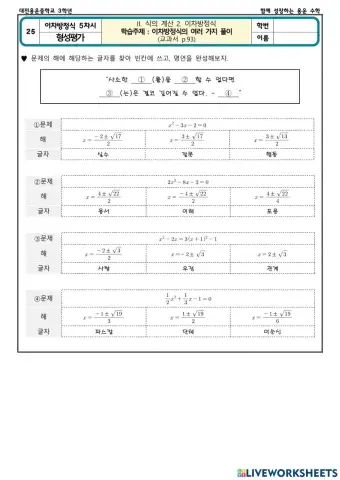 대전용운중학교 3학년 함께 성장하는 용운 수학
25 이차방정식 5차시 형성평가
II. 식의 계산 2. 이차방정식
학습주제 : 이차방정식의 여러 가지 풀이
(교과서 p.93)
학번
이름
♥ 문제의 해에 해당하는 글자를 찾아 빈칸에 쓰고, 명언을 완성해보자.
"사소한 ① (를)을 ② 할 수 없다면
③ (는)은 결코 깊어질 수 없다. - ④ "
①문제 x² - 3x - 2 = 0
해 x = (-2 ± √17)/2 x = (3 ± √17)/2 x = (3 ± √13)/2
글자 실수 잘못 행동
②문제 2x² - 8x - 3 = 0
해 x = (4 ± √22)/2 x = (-4 ± √22)/2 x = (4 ± √22)/4
글자 용서 이해 포용
③문제 x² - 2x = 3(x + 1)² - 1
해 x = (-2 ± √3)/2 x = -2 ± √3 x = 2 ± √3
글자 사랑 우정 관계
④문제 1/2 x² + 1/3 x - 1 = 0
해 x = (-1 ± √19)/3 x = (1 ± √19)/2 x = (-1 ± √19)/6
글자 파스칼 단테
LIVEWORKSHEETS